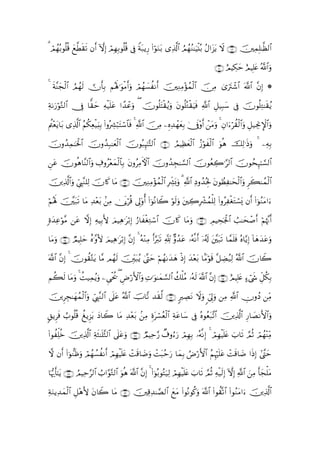 قُلُوبُهُمْ ۗ وَاللَّهُ عَلِيمٌ حَكِيمٌ ﴿١١٠﴾
۞ إِنَّ اللَّهَ اشْتَرَىٰ مِنَ الْمُؤْمِنِينَ أَنفُسَهُمْ وَأَمْوَالَهُم بِأَنَّ لَهُمُ الْجَنَّةَ ۚ
يُقَاتِلُونَ فِي سَبِيلِ اللَّهِ فَيَقْتُلُونَ وَيُقْتَلُونَ ۖ وَعْدًا عَلَيْهِ حَقًّا فِي التَّوْرَاةِ
وَالْإِنجِيلِ وَالْقُرْآنِ ۚ وَمَنْ أَوْفَىٰ بِعَهْدِهِ مِنَ اللَّهِ ۚ فَاسْتَبْشِرُوا بِبَيْعِكُمُ الَّذِي بَايَعْتُم
بِهِ ۚ وَذَٰلِكَ هُوَ الْفَوْزُ الْعَظِيمُ ﴿١١١﴾ التَّائِبُونَ الْعَابِدُونَ الْحَامِدُونَ
السَّائِحُونَ الرَّاكِعُونَ السَّاجِدُونَ الْآمِرُونَ بِالْمَعْرُوفِ وَالنَّاهُونَ عَنِ
الْمُنكَرِ وَالْحَافِظُونَ لِحُدُودِ اللَّهِ ۗ وَبَشِّرِ الْمُؤْمِنِينَ ﴿١١٢﴾ مَا كَانَ لِلنَّبِيِّ وَالَّذِينَ
آمَنُوا أَن يَسْتَغْفِرُوا لِلْمُشْرِكِينَ وَلَوْ كَانُوا أُولِي قُرْبَىٰ مِن بَعْدِ مَا تَبَيَّنَ لَهُمْ
أَنَّهُمْ أَصْحَابُ الْجَحِيمِ ﴿١١٣﴾ وَمَا كَانَ اسْتِغْفَارُ إِبْرَاهِيمَ لِأَبِيهِ إِلَّا عَن مَّوْعِدَةٍ
وَعَدَهَا إِيَّاهُ فَلَمَّا تَبَيَّنَ لَهُ أَنَّهُ عَدُوٌّ لِّلَّهِ تَبَرَّأَ مِنْهُ ۚ إِنَّ إِبْرَاهِيمَ لَأَوَّاهٌ حَلِيمٌ ﴿١١٤﴾ وَمَا
كَانَ اللَّهُ لِيُضِلَّ قَوْمًا بَعْدَ إِذْ هَدَاهُمْ حَتَّىٰ يُبَيِّنَ لَهُم مَّا يَتَّقُونَ ۚ إِنَّ اللَّهَ
بِكُلِّ شَيْءٍ عَلِيمٌ ﴿١١٥﴾ إِنَّ اللَّهَ لَهُ مُلْكُ السَّمَاوَاتِ وَالْأَرْضِ ۖ يُحْيِي وَيُمِيتُ ۚ وَمَا لَكُم
مِّن دُونِ اللَّهِ مِن وَلِيٍّ وَلَا نَصِيرٍ ﴿١١٦﴾ لَّقَد تَّابَ اللَّهُ عَلَى النَّبِيِّ وَالْمُهَاجِرِينَ
وَالْأَنصَارِ الَّذِينَ اتَّبَعُوهُ فِي سَاعَةِ الْعُسْرَةِ مِن بَعْدِ مَا كَادَ يَزِيغُ قُلُوبُ فَرِيقٍ
مِّنْهُمْ ثُمَّ تَابَ عَلَيْهِمْ ۚ إِنَّهُ بِهِمْ رَءُوفٌ رَّحِيمٌ ﴿١١٧﴾ وَعَلَى الثَّلَاثَةِ الَّذِينَ خُلِّفُوا
حَتَّىٰ إِذَا ضَاقَتْ عَلَيْهِمُ الْأَرْضُ بِمَا رَحُبَتْ وَضَاقَتْ عَلَيْهِمْ أَنفُسُهُمْ وَظَنُّوا أَن لَّا
مَلْجَأَ مِنَ اللَّهِ إِلَّا إِلَيْهِ ثُمَّ تَابَ عَلَيْهِمْ لِيَتُوبُوا ۚ إِنَّ اللَّهَ هُوَ التَّوَّابُ الرَّحِيمُ ﴿١١٨﴾ يَا أَيُّهَا
الَّذِينَ آمَنُوا اتَّقُوا اللَّهَ وَكُونُوا مَعَ الصَّادِقِينَ ﴿١١٩﴾ مَا كَانَ لِأَهْلِ الْمَدِينَةِ